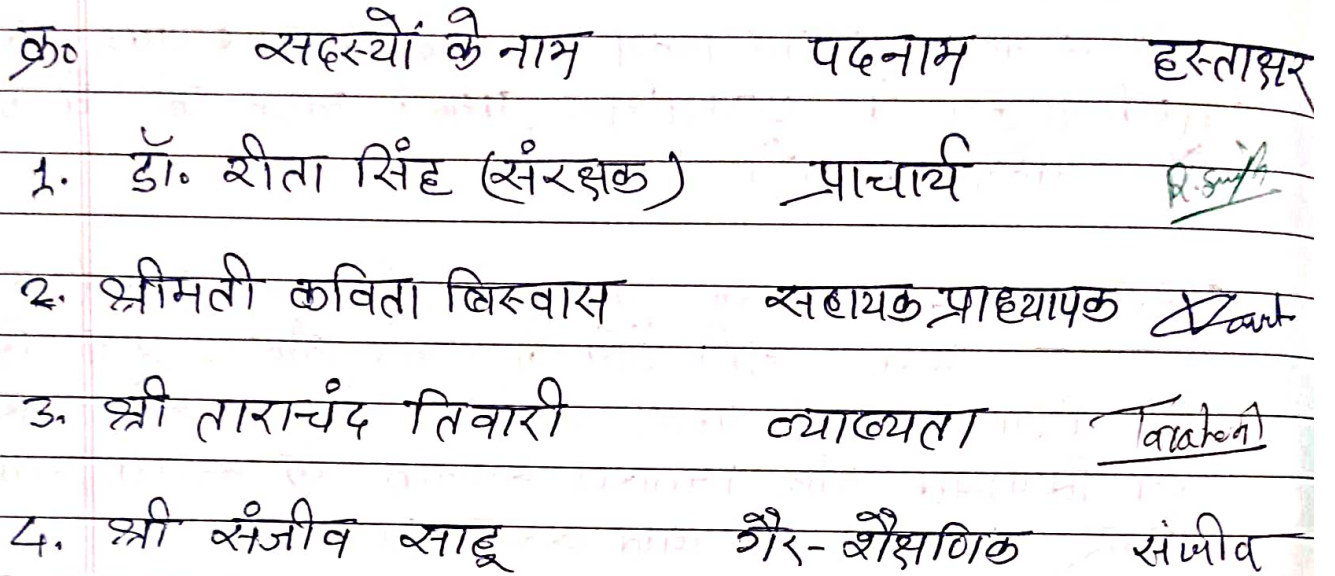 क्र० सदस्यों के नाम पदनाम हस्ताक्षर
1. डॉ. रीता सिंह (संरक्षक) प्राचार्य R. Singh
2. श्रीमती कविता बिस्वास सहायक प्राध्यापक
3. श्री ताराचंद तिवारी व्याख्यता
4. श्री संजीव साहू गैर-शैक्षणिक संजीव